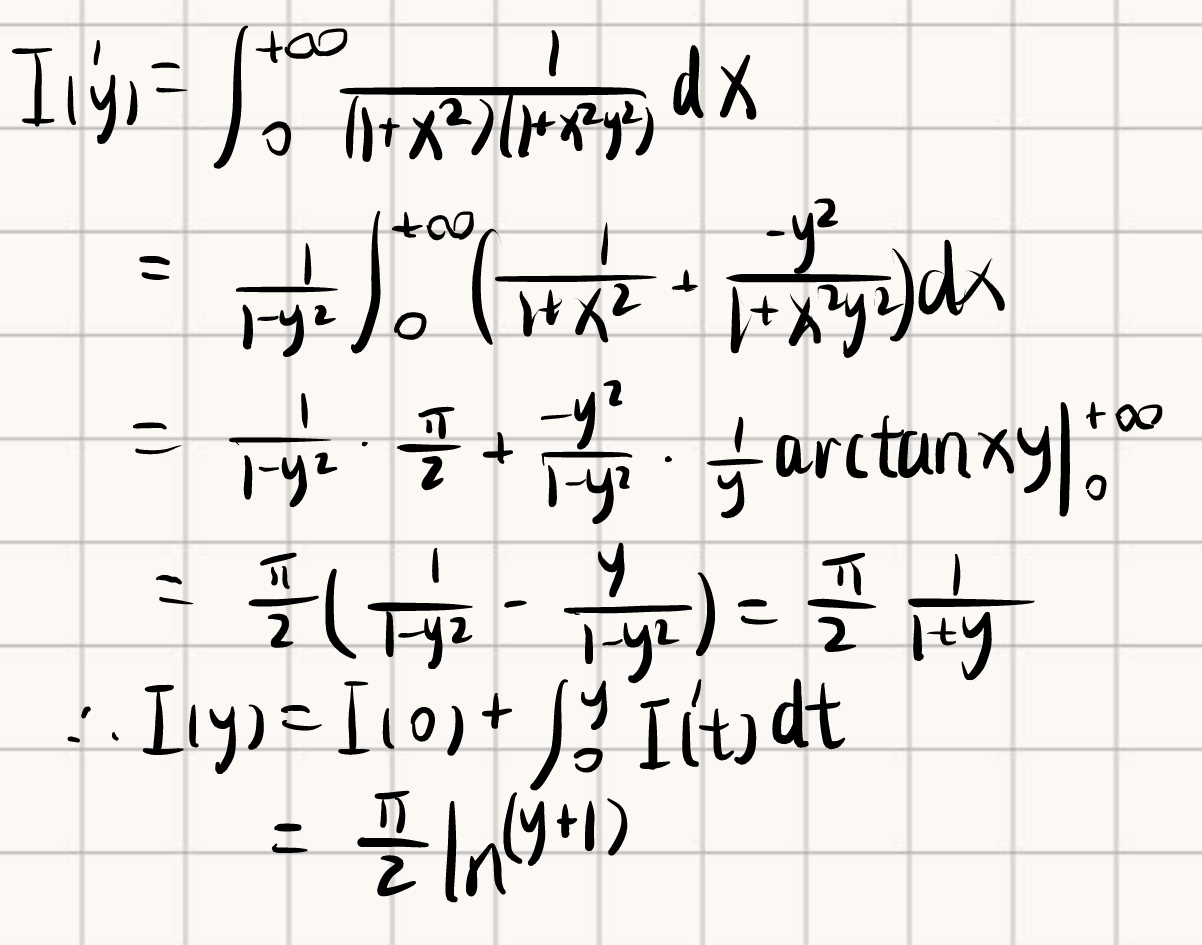 I'(y) = ∫₀^{+∞} 1/((1+x²)(1+x²y²)) dx
= 1/(1-y²) ∫₀^{+∞} (1/(1+x²) + -y²/(1+x²y²)) dx
= 1/(1-y²) · π/2 + -y²/(1-y²) · 1/y arctan xy |₀^{+∞}
= π/2 (1/(1-y²) - y/(1-y²)) = π/2 1/(1+y)
∴ I(y) = I(0) + ∫₀^y I'(t) dt
= π/2 ln(y+1)